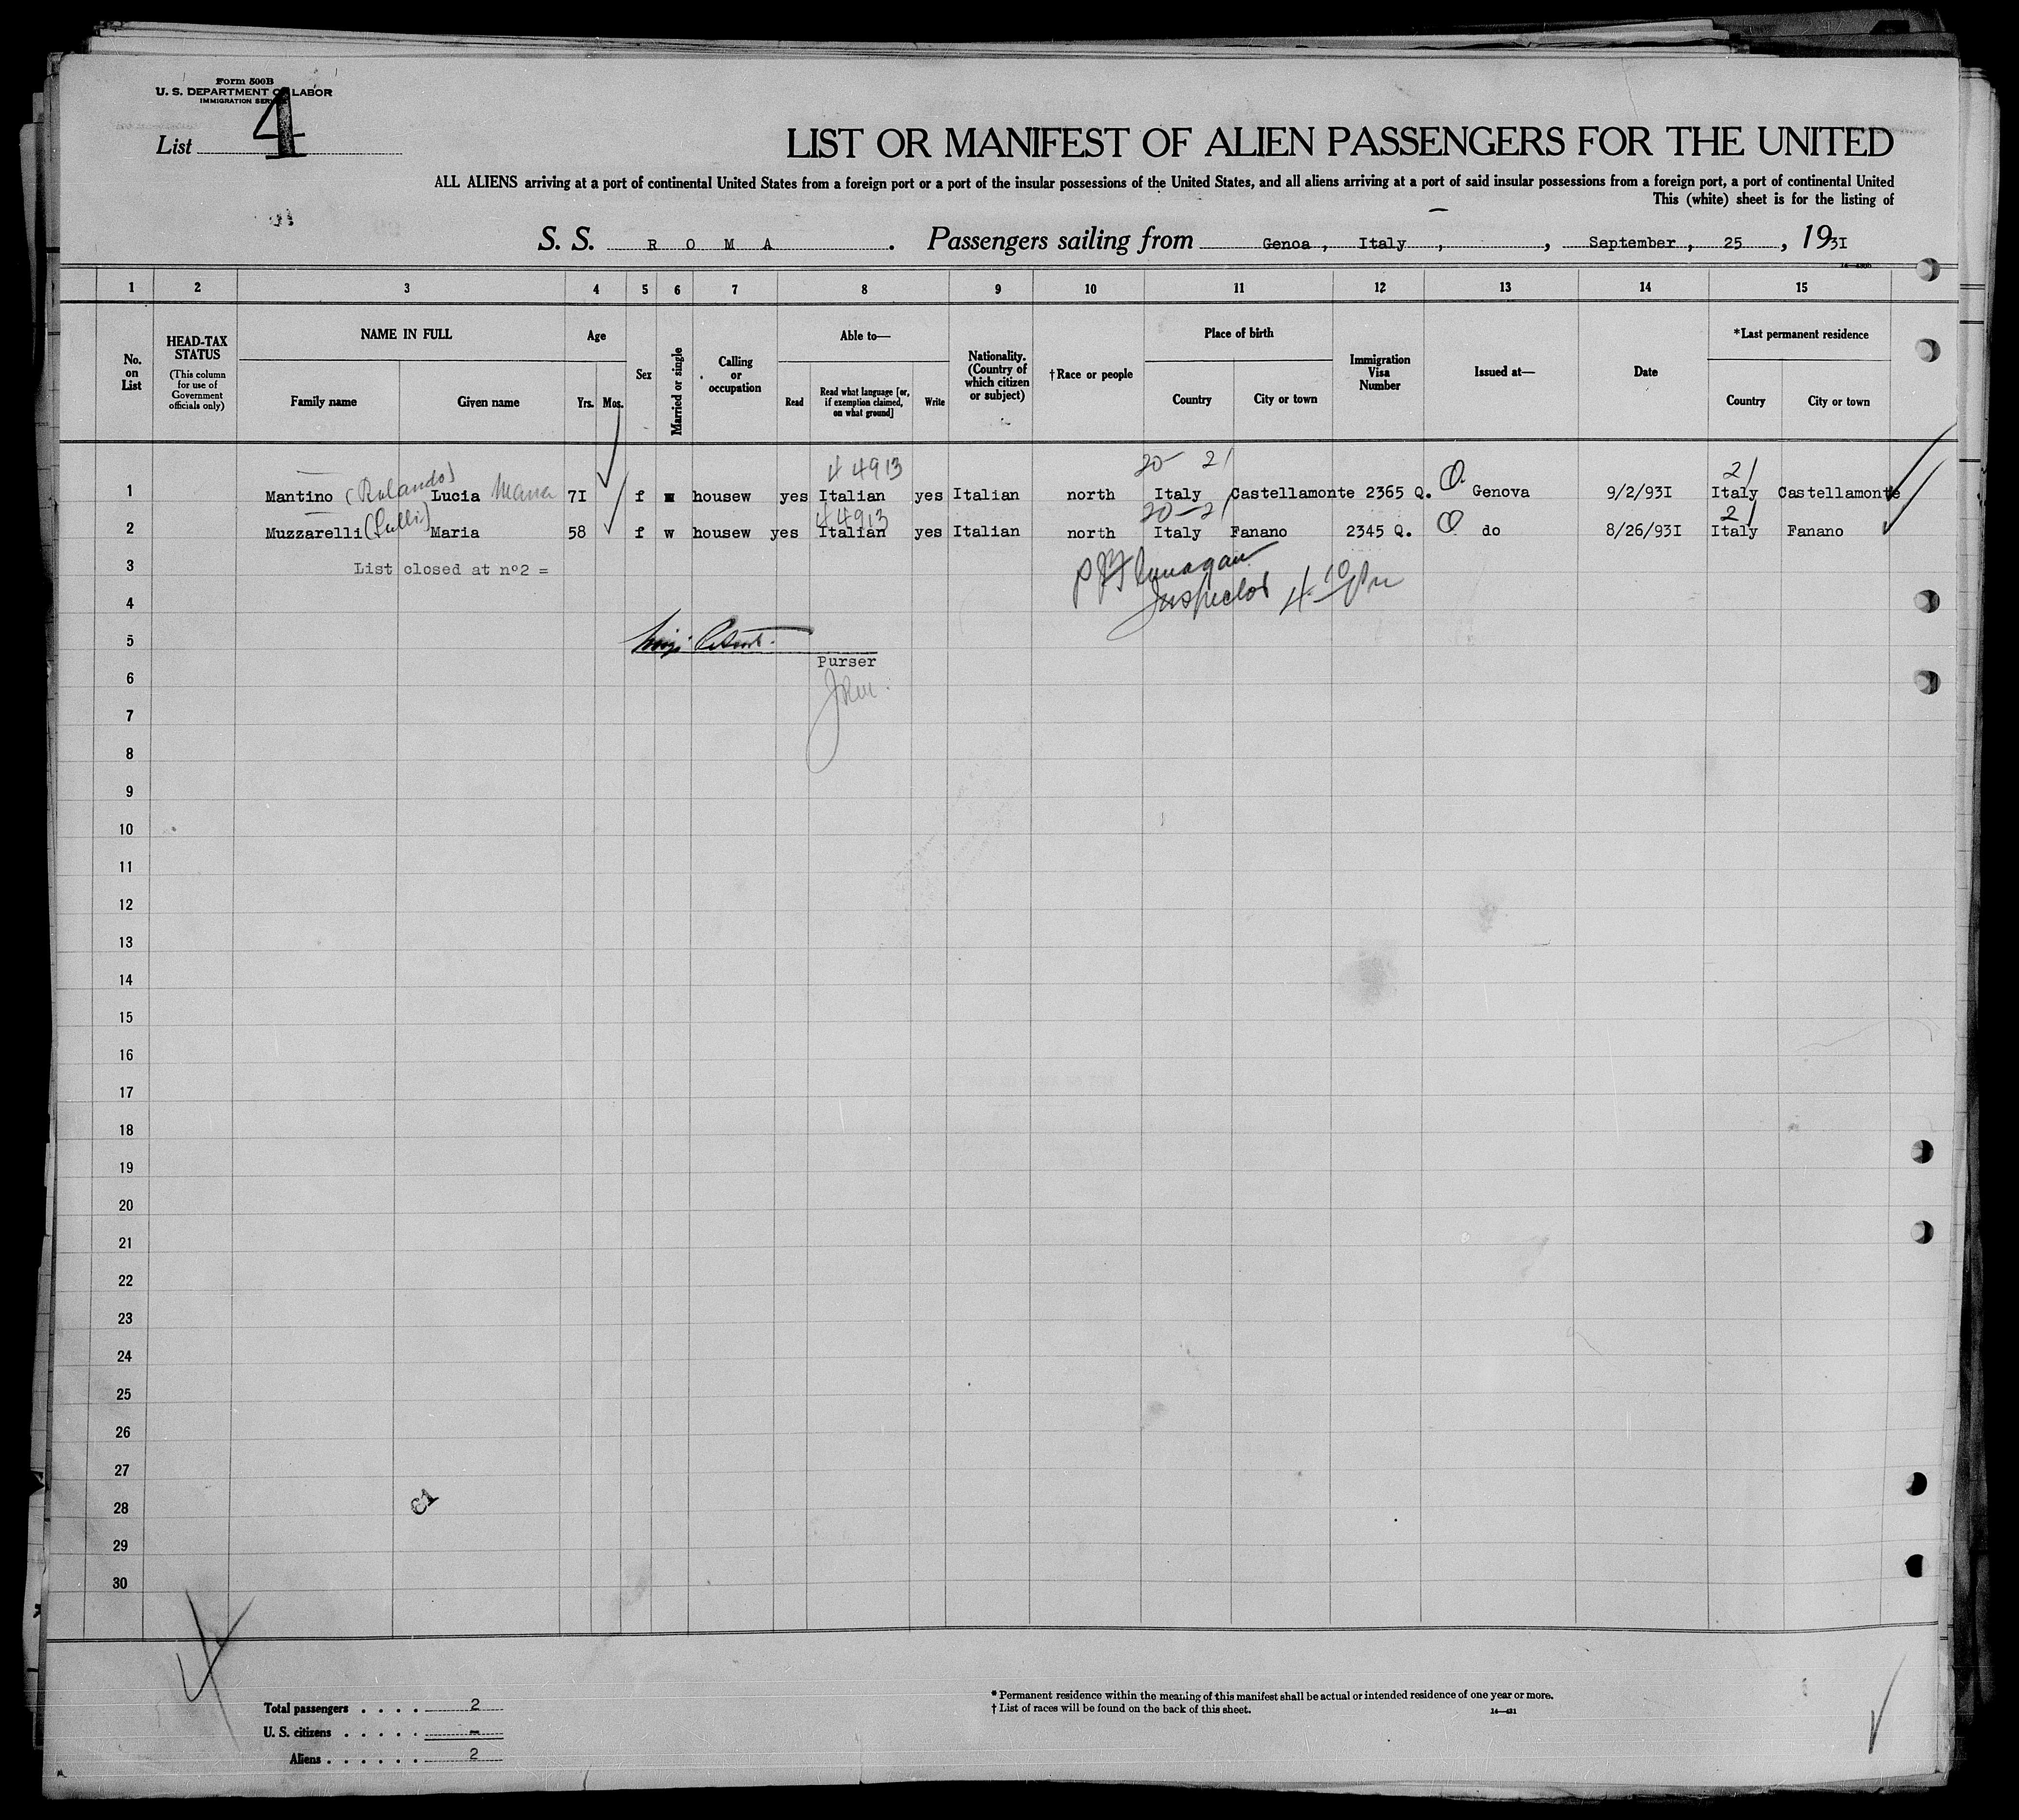 Form 500B
U. S. DEPARTMENT OF LABOR
IMMIGRATION SERVICE
List 4
LIST OR MANIFEST OF ALIEN PASSENGERS FOR THE UNITED
ALL ALIENS arriving at a port of continental United States from a foreign port or a port of the insular possessions of the United States, and all aliens arriving at a port of said insular possessions from a foreign port, a port of continental United
This (white) sheet is for the listing of
S. S. R O M A . Passengers sailing from Genoa, Italy, , September, 25, 1931
1 2 3 4 5 6 7 8 9 10 11 12 13 14 15
No. on List
HEAD-TAX STATUS (This column for use of Government officials only)
NAME IN FULL
Family name Given name
Age
Yrs. Mos.
Sex
Married or single
Calling or occupation
Able to—
Read
Read what language [or, if exemption claimed, on what ground]
Write
Nationality. (Country of which citizen or subject)
†Race or people
Place of birth
Country City or town
Immigration Visa Number
Issued at—
Date
*Last permanent residence
Country City or town
4 4913 20- 21 21
1 Mantino (Rolando) Lucia Maria 7I f housew yes Italian yes Italian north Italy Castellamonte 2365 Q. Genova 9/2/93I Italy Castellamonte
4 4913 20-21 21
2 Muzzarelli Maria 58 f w housew yes Italian yes Italian north Italy Fanano 2345 Q. do 8/26/93I Italy Fanano
3 List closed at nº2 =
Inspector
4
5
Purser
6
7
8
9
10
11
12
13
14
15
16
17
18
19
20
21
22
23
24
25
26
27
28
29
30
Total passengers . . . . 2
U. S. citizens . . . . . -
Aliens . . . . . . 2
* Permanent residence within the meaning of this manifest shall be actual or intended residence of one year or more.
† List of races will be found on the back of this sheet.
14—431